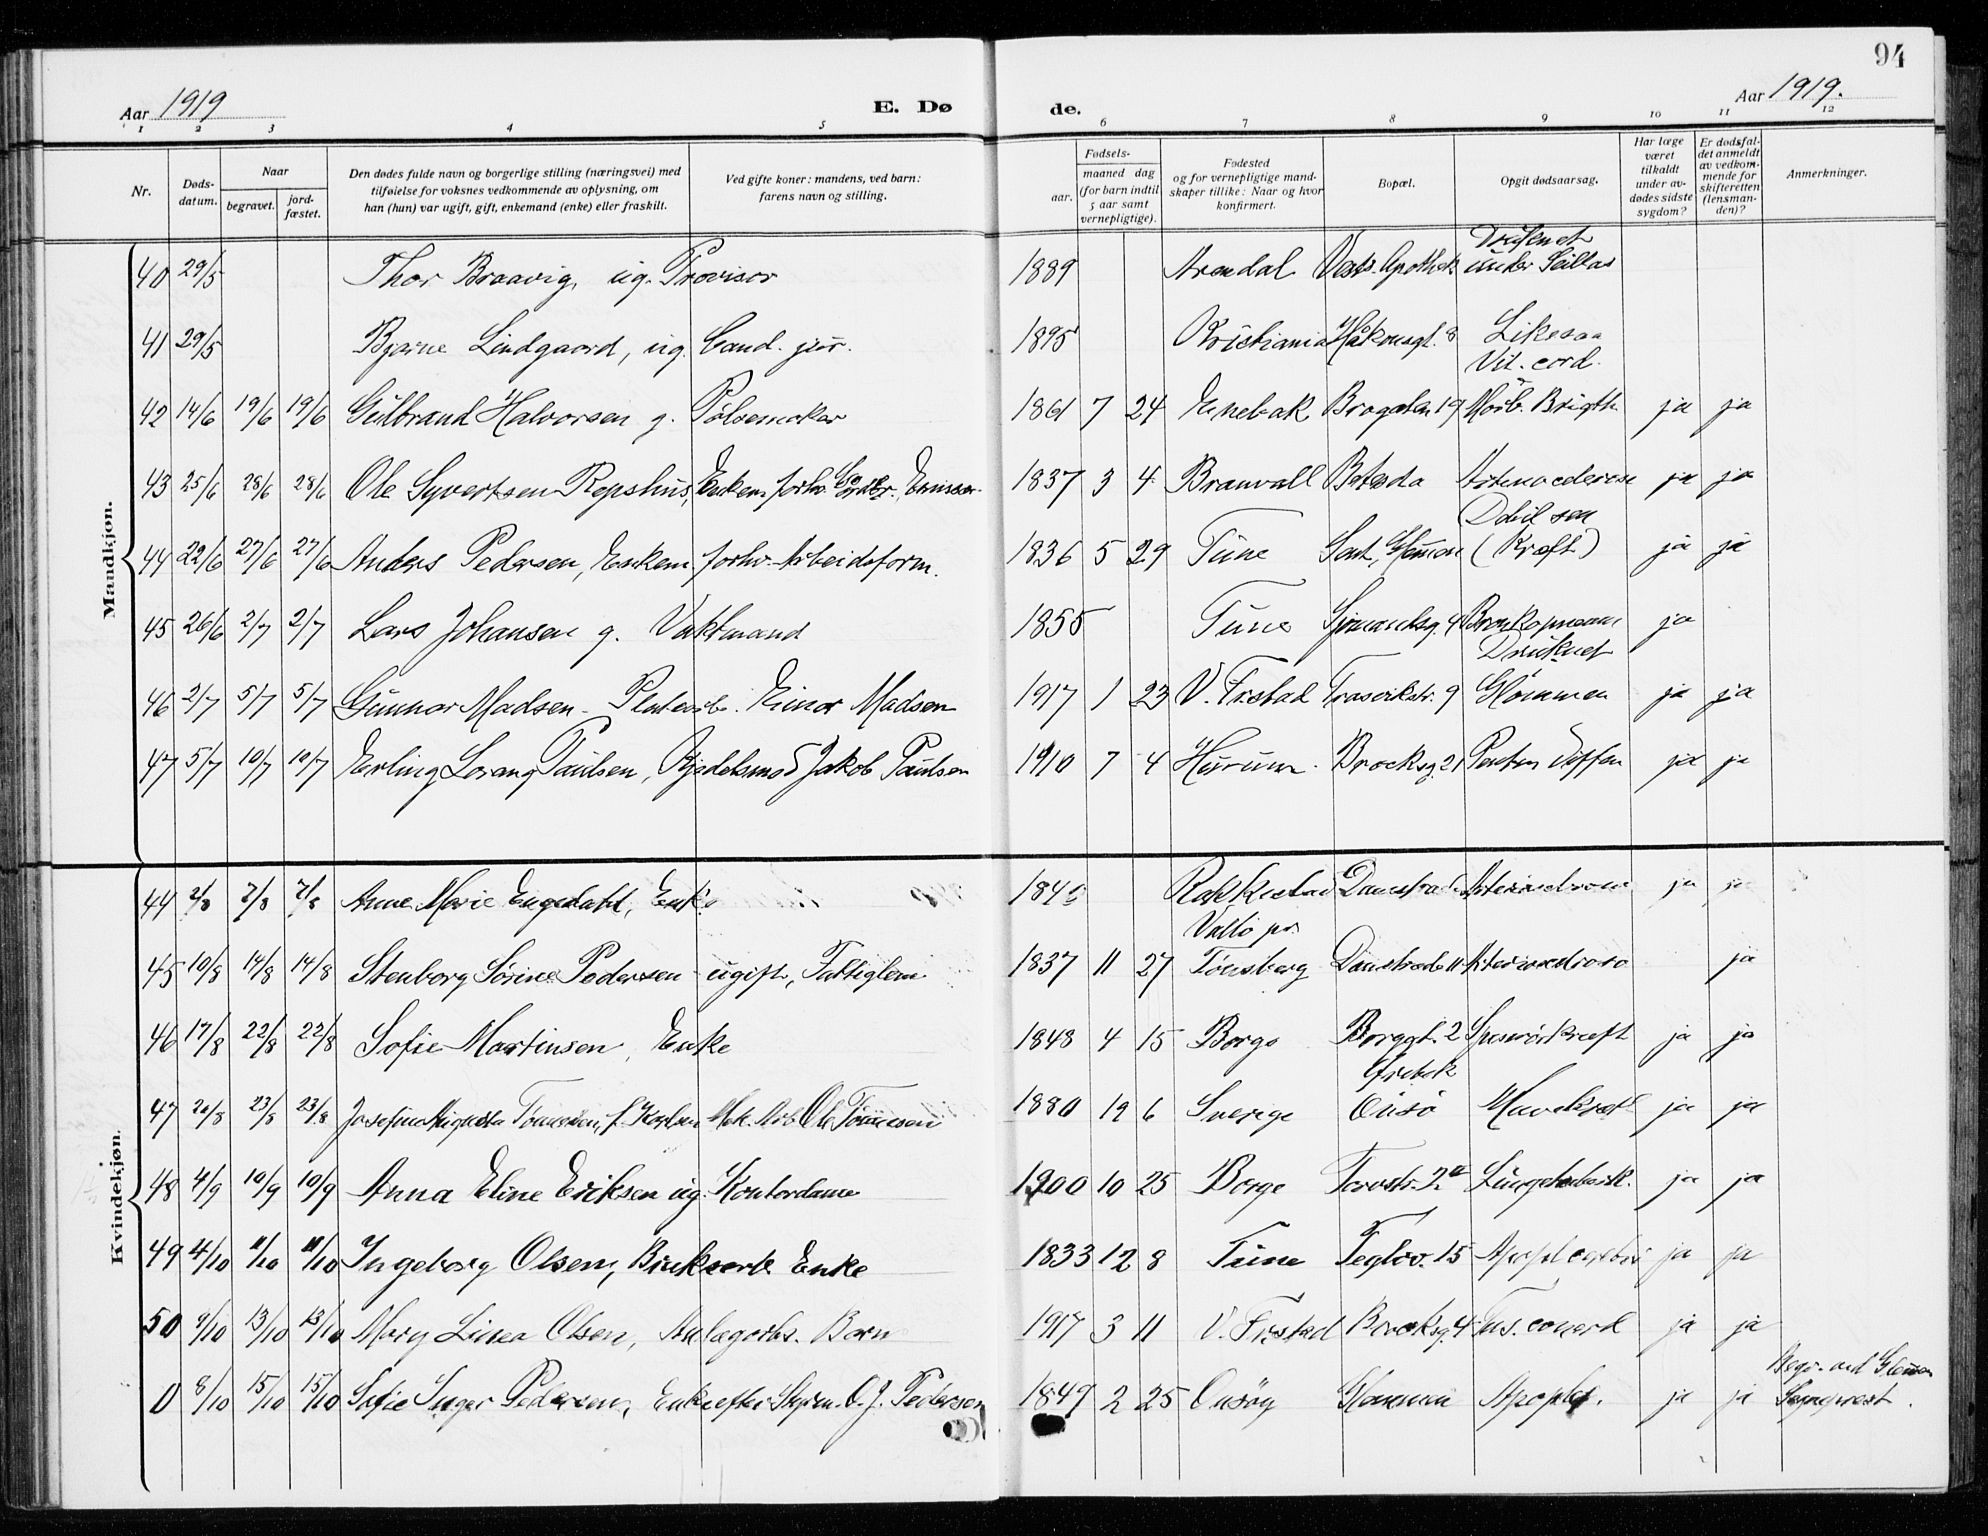 94
Aar 1919
E. Dø
de.
Aar 1919.
1 2 3 4 5 6 7 8 9 10 11 12
Nr.
Døds-
datum.
Naar
begravet.
jord-
fæstet.
Den dødes fulde navn og borgerlige stilling (næringsvei) med
tilføielse for voksnes vedkommende av oplysning, om
han (hun) var ugift, gift, enkemand (enke) eller fraskilt.
Ved gifte koner: mandens, ved barn:
farens navn og stilling.
Fødsels-
aar.
maaned dag
(for barn indtil
5 aar samt
vernepligtige).
Fødested
og for vernepligtige mand-
skaper tillike: Naar og hvor
konfirmert.
Bopæl.
Opgit dødsaarsag.
Har læge
været
tilkaldt
under av-
dødes sidste
sygdom?
Er dødsfal-
det anmeldt
av vedkom-
mende for
skifteretten
(lensman-
den)?
Anmerkninger.
Mandkjøn.
40 29/5 Thor Braavig, ug. Provisor 1889 Arendal Vests. Apothek Druknet under Seilas
41 29/5 Bjarne Lindgaard, ug. Cand. jur. 1895 Kristiania Håkonsgt. 8 Likesaa
42 14/6 19/6 19/6 Gulbrand Halvorsen g. Pølsemaker 1861 7 24 Enebak Brogaten 19 Vit. cord. Morb. Brigth. ja ja
43 25/6 28/6 28/6 Ole Syvertsen Repshus, Enkem. forhv. Gardbr. 1837 3 4 Betesda ja ja
44 22/6 27/6 27/6 Anders Pedersen, Enkem. forhv. Arbeidsform. 1836 5 29 Tune Glemmen (Kræft) ja ja
45 26/6 2/7 2/7 Lars Johansen g. Vaktmand 1855 Tune Sjømandsg. 4 ja
46 2/7 5/7 5/7 Gunnar Madsen - Platearb. Einar Madsen 1917 1 23 V. Fr.stad Trosvikstr. 9 Druknet Glommen ja ja
47 5/7 10/7 10/7 Erling Lorang Paulsen, Kjedelsmed Jakob Paulsen 1910 7 4 Hurum Brocksg. 21 ja ja
Kvindekjøn.
44 2/8 7/8 7/8 Anne Marie Engedahl, Enke 1845 Rakkestad ja ja
45 10/8 14/8 14/8 Stenborg Sørine Pedersen - ugift, Fattiglem 1837 11 27 Vallø pr. Tønsberg Damstrædet 11 ja
46 17/8 22/8 22/8 Sofie Martinsen, Enke 1848 4 15 Borge Borggt. 2 Spiserørkræft ja ja
47 20/8 23/8 23/8 Josefine Augusta Tønnesen, f. Karlsen Mek. Arb. Ole Tønnesen 1880 6 Sverige Onsø Mavekræft ja ja
48 4/9 10/9 10/9 Anna Eline Eriksen ug. Kontordame 1900 10 25 Borge Torvstr. Lungetuberk. ja ja
49 4/10 11/10 11/10 Ingeborg Olsen, Enke 1833 12 8 Tune Teglv. 15 ja ja
50 9/10 13/10 13/10 Mary Linea Olsen, Barn 1917 3 11 V. Fr.stad Brocksg. 4 ja ja
0 8/10 15/10 15/10 Sofie Inger Pedersen, Enke efter O. J. Pedersen 1849 2 25 Onsøy Glemmen Apoplex. ja ja